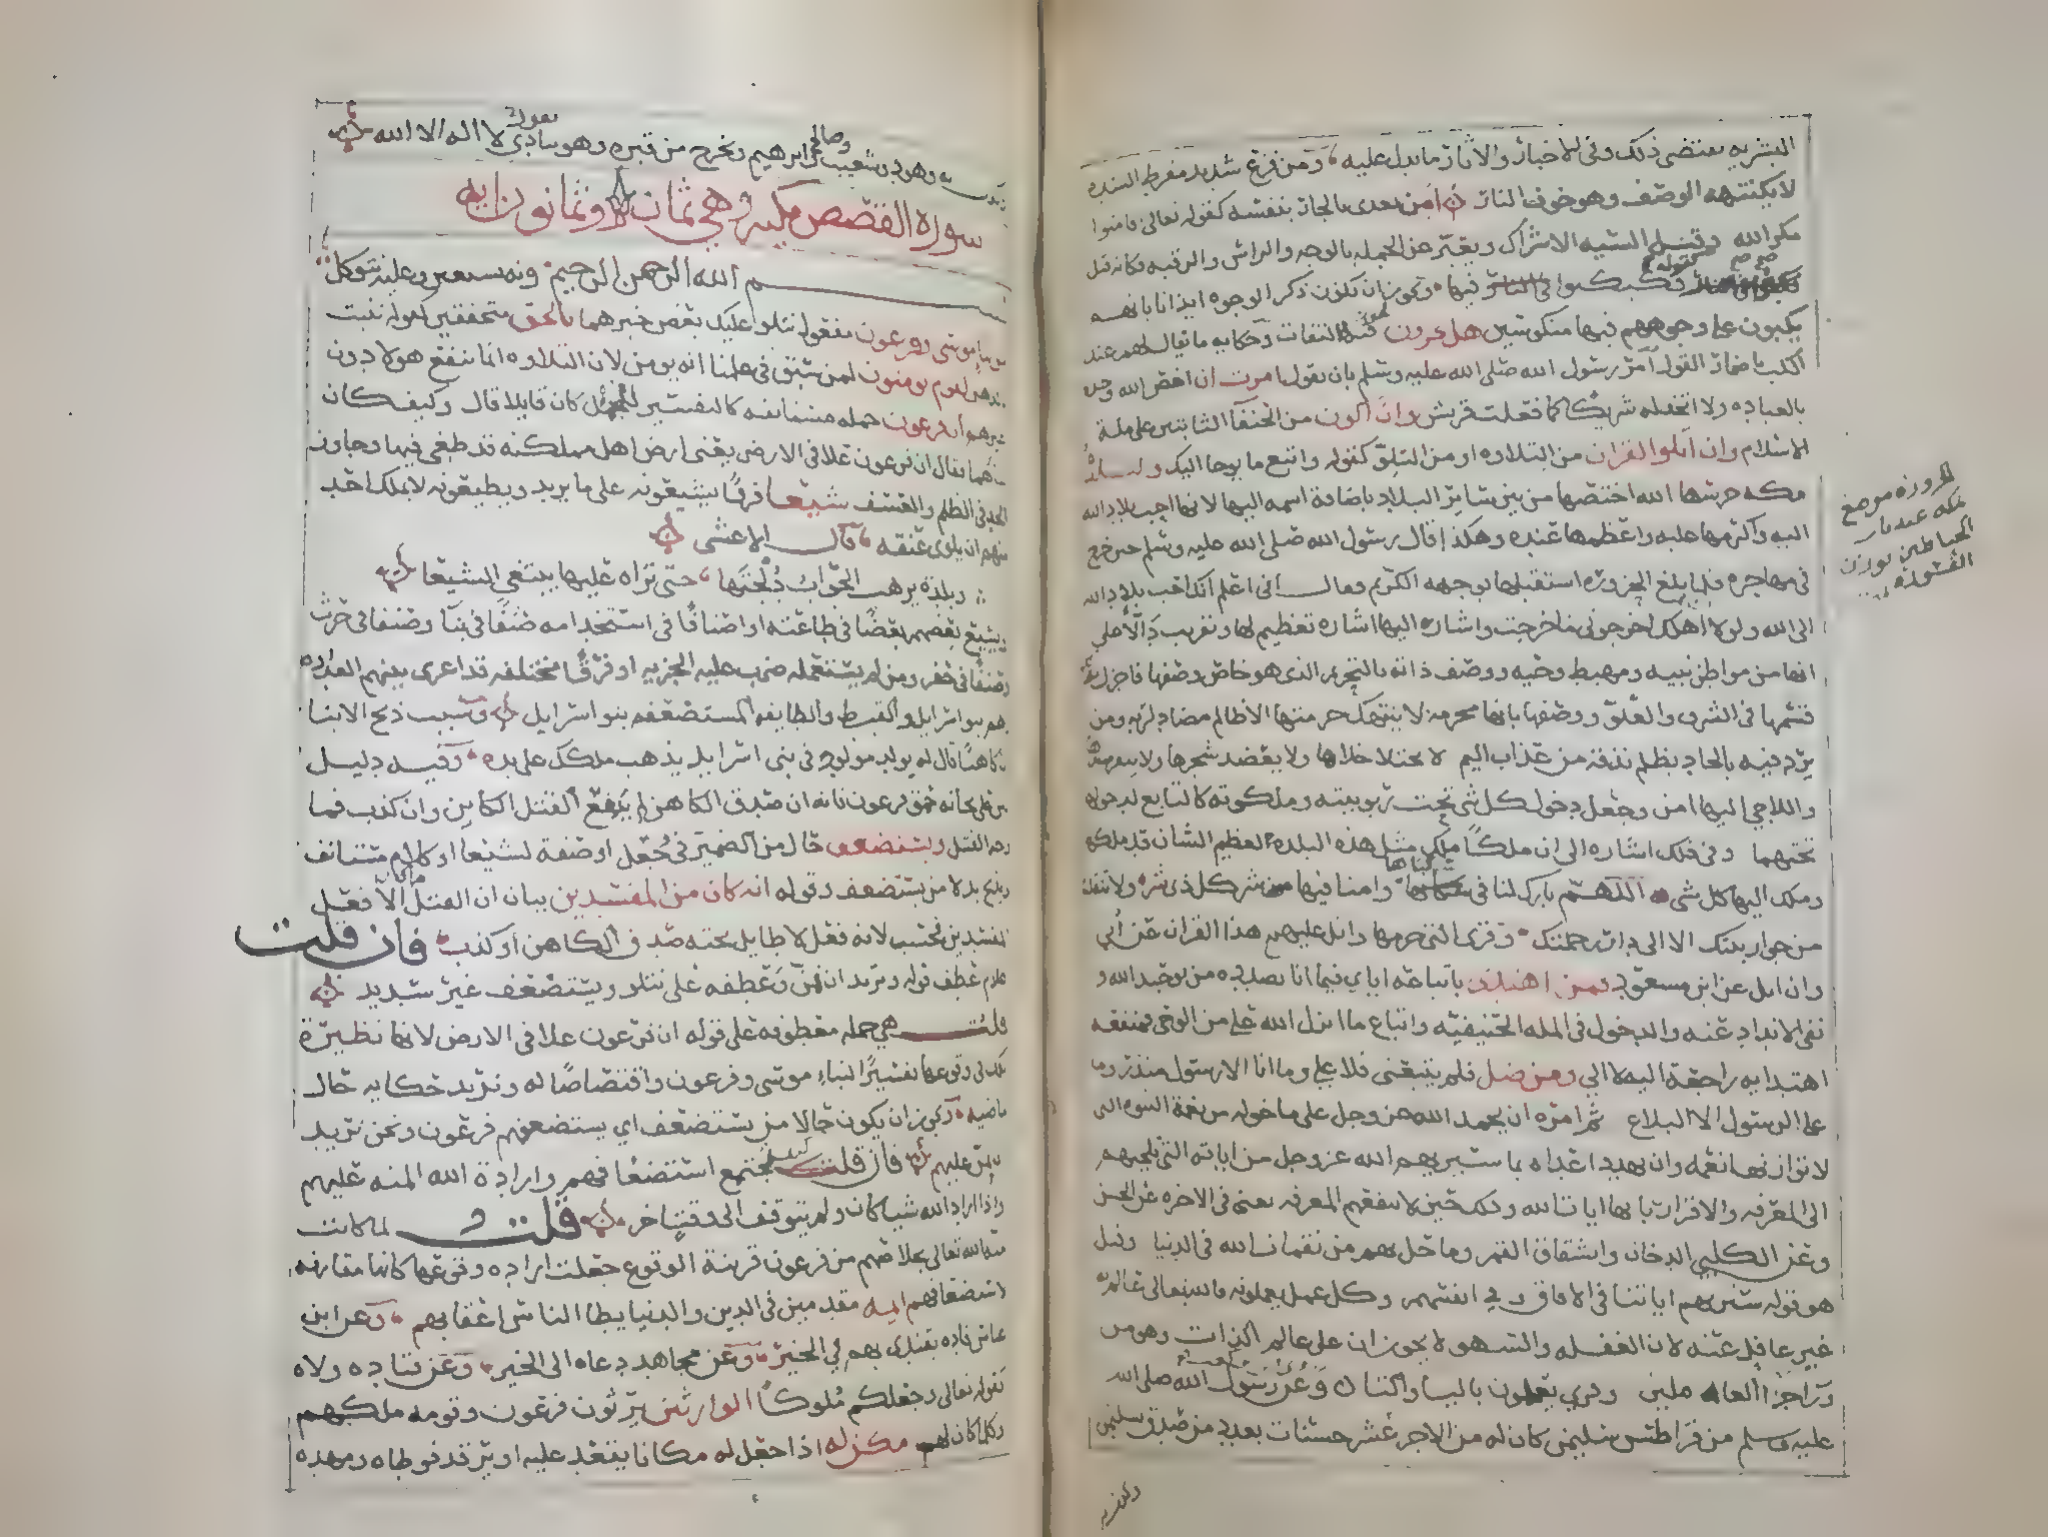 البشريه يقتضى ذلك وفى الاخبار والاثار مايدل عليه ومن فزع شديد مفرط الشده
لا يكتنهه الوصف وهو خوف النار امن يعدى بالجار بنفسه كقوله تعالى فامنوا
مكر الله وقيل السيه الاشراك ويعبر عن الجمله بالوجه والراس والرقبه فكانه قيل
فكبكبوا فيها ويجوز ان يكون ذكر الوجوه ايذانا بانهم
يكبون على وجوههم فيها منكوسين هل تجزون فيه الالتفات وحكايه ما يقال لهم عند
الكب باضمار القول امر رسول الله صلى الله عليه وسلم بان يقول امرت ان اخص الله وحده
بالعباده ولا اتخذ له شريكا كما فعلت قريش وان اكون من الحنفا الثابتين على ملة
الاسلام وان اتلو القران من التلاوه او من التلو كقوله واتبع ما يوحا اليك والبلدة
مكه حرسها الله اختصها من بين سائر البلاد باضافة اسمه اليها لانها احب بلاد الله
اليه واكرمها عليه واعظمها عنده وهكذا قال رسول الله صلى الله عليه وسلم حين خرج
فى مهاجره فلما بلغ الحزوره استقبلها بوجهه الكريم وقال انى اعلم انك احب بلاد الله
الى الله ولولا ان اهلك اخرجونى ما خرجت واشار اليها اشاره تعظيم لها وتقريب دالا على
انها من مواطن نبيه ومهبط وحيه ووصف ذاته بالتحريم الذى هو خاص وصفها فاجزل
قسمها فى الشرف والعلو ووصفها بانها محرمه لا ينتهك حرمتها الا ظالم مضاد لربه ومن
يرد فيه بالحاد بظلم نذقه من عذاب اليم لا يختلا خلاها ولا يعضد شجرها ولا ينفر صيدها
واللاجي اليها امن وجعل دخول كل شى تحت ربوبيته وملكوته كالتابع لدخولها
تحتهما وفى ذلك اشاره الى ان ملكا ملك مثل هذه البلدة العظيم الشان قد ملكها
وملك اليها كل شى اللهم بارك لنا فى سكناها وامنا فيها من شر كل ذى شر ولا تنقلنا
من جوار بيتك الا الى دار رحمتك وقرى التى حرمها واتل عليهم هذا القران عن أبي
وان اتل عن ابن مسعود فمن اهتدى باتباعه اياي فيما انا بصدده من توحيد الله و
نفى الانداد عنه والدخول فى المله الحنيفيه واتباع ما انزل الله على من الوحى فمنفعه
اهتدايه راجعة اليه لا الي ومن ضل فلم يتبعنى فلا على وما انا الا رسول منذر وما
على الرسول الا البلاغ ثم امره ان يحمد الله عز وجل على ما خوله من نعمة النبوه التى
لا توازنها نعمه وان يهدد اعداه بما سيريهم الله عز وجل من اياته التى تلجيهم
الى المعرفه والاقرار بانها ايات الله وذلك حين لا تنفعهم المعرفه يعنى فى الاخره عن الحسن
وعن الكلبي الدخان وانشقاق القمر وما حل بهم من نقمات الله فى الدنيا وقيل
هو قوله سنريهم اياتنا فى الافاق وفي انفسهم وكل عمل يعملونه فالله تعالى عالم به
غير غافل عنه لان الغفله والسهو لا يجوزان على عالم الذات وهو من
وراجزا العاملين وقري تعلمون باليا والتا وعن رسول الله صلى الله
عليه وسلم من قرا طس سليمن كان له من الاجر عشر حسنات بعدد من صدق سليمن
الحزوره موضع
بمكه عند باب
الحناطين بوزن
القسوره
وهود وشعيب وصالح وابرهيم ويخرج من قبره وهو ينادى يقول لا اله الا الله
سورة القصص مكيه وهي ثمان وثمانون ايه
بسم الله الرحمن الرحيم وبه نستعين وعليه نتوكل
من نبا موسى وفرعون مفعول نتلو عليك بعض خبرهما بالحق محققين كقوله تنبت
بالدهن لقوم يومنون لمن سبق فى علمنا انه يومن لان التلاوه انما تنفع هولا دون
غيرهم ان فرعون جمله مستانفه كالتفسير للمجمل كان قايلا قال وكيف كان
نباهما فقال ان فرعون علا فى الارض يعنى ارض اهل مملكته قد طغى فيها وجاوز
الحد فى الظلم والعسف شيعا فرقا يشيعونه على ما يريد ويطيعونه لا يملك احد
منهم ان يلوى عنقه قال الاعشى
وبلدة يرهب الجواب دلجتها حتى تراه عليها يبتغى الشيعا
او يشيع بعضهم بعضا فى طاعته او اصنافا فى استخدامه صنفا فى بنا وصنفا فى حرث
وصنفا فى حفر ومن لم يستعمله ضرب عليه الجزيه او فرقا مختلفه قد اغرى بينهم العداوه
وهم بنو اسرايل والقبط والطايفه المستضعفه بنو اسرايل وسبب ذبح الابنا
ان كاهنا قال له يولد مولود فى بنى اسرايل يذهب ملكك على يده وفيه دليل
بين على ثخانه حمق فرعون فانه ان صدق الكاهن لم يدفع القتل الكاين وان كذب فما
وجه القتل ويستضعف حال من الضمير فى جعل او صفة لشيعا او كلام مستانف
ويذبح بدلا من يستضعف وقوله انه كان من المفسدين بيان ان القتل ما كان الا فعل
المفسدين فحسب لانه فعل لا طايل تحته صدق الكاهن او كذب فان قلت
علام عطف قوله ونريد ان نمن وعطفه على نتلو ويستضعف غير سديد
قلت هى جمله معطوفه على قوله ان فرعون علا فى الارض لانها نظيرة
تلك فى وقوعها تفسيرا لنبا موسى وفرعون واقتصاصا له ونريد حكايه حال
ماضيه ويجوز ان يكون حالا من يستضعف اي يستضعفهم فرعون ونحن نريد
ان نمن عليهم فان قلت كيف يجتمع استضعافهم وارادة الله المنه عليهم
واذا اراد الله شيا كان ولم يتوقف الى وقت اخر قلت لما كانت
منة الله تعالى بخلاصهم من فرعون قريبة الوقوع جعلت اراده وقوعها كانها مقارنه
لاستضعافهم ايمه مقدمين فى الدين والدنيا يطا الناس اعقابهم وعن ابن
عباس قاده يقتدى بهم فى الخير وعن مجاهد دعاه الى الخير وعن قتاده ولاه
كقوله تعالى وجعلكم ملوكا الوارثين يرثون فرعون وقومه ملكهم
وكلما كان لهم مكن له اذا جعل له مكانا يقعد عليه او يرقد فوطاه ومهده